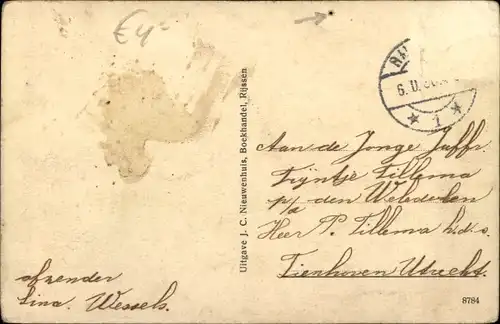 €4-
6.11.
1
Uitgave J. C. Nieuwenhuis, Boekhandel, Rijssen
Aan de Jonge Juffr.
Tijntje Tillema
p/a den Weledelen
Heer P. Tillema h.d.s.
Tienhoven Utrecht.
afzender
Lina. Wessels.
8784